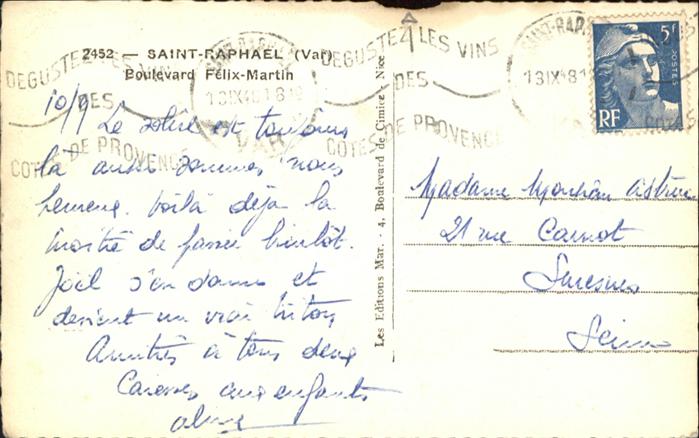 2452 — SAINT-RAPHAEL (Var)
Boulevard Félix-Martin
DEGUSTEZ LES VINS
DES
COTES DE PROVENCE
DEGUSTEZ LES VINS
DES
COTES DE PROVENCE
VAR
SAINT-RAPHAEL
13 IX 48 18
5F
POSTES
RF
10/9 Le soleil est toujours
là aussi sommes nous
heureux. Voilà déjà la
moitié de passée bientôt.
Joël s'en donne et
devient un vrai triton
Amitiés à tous deux
Caresses aux enfants
Les Editions Mar. 4, Boulevard de Cimiez - Nice
Madame
21 rue Carnot
Suresnes
Seine